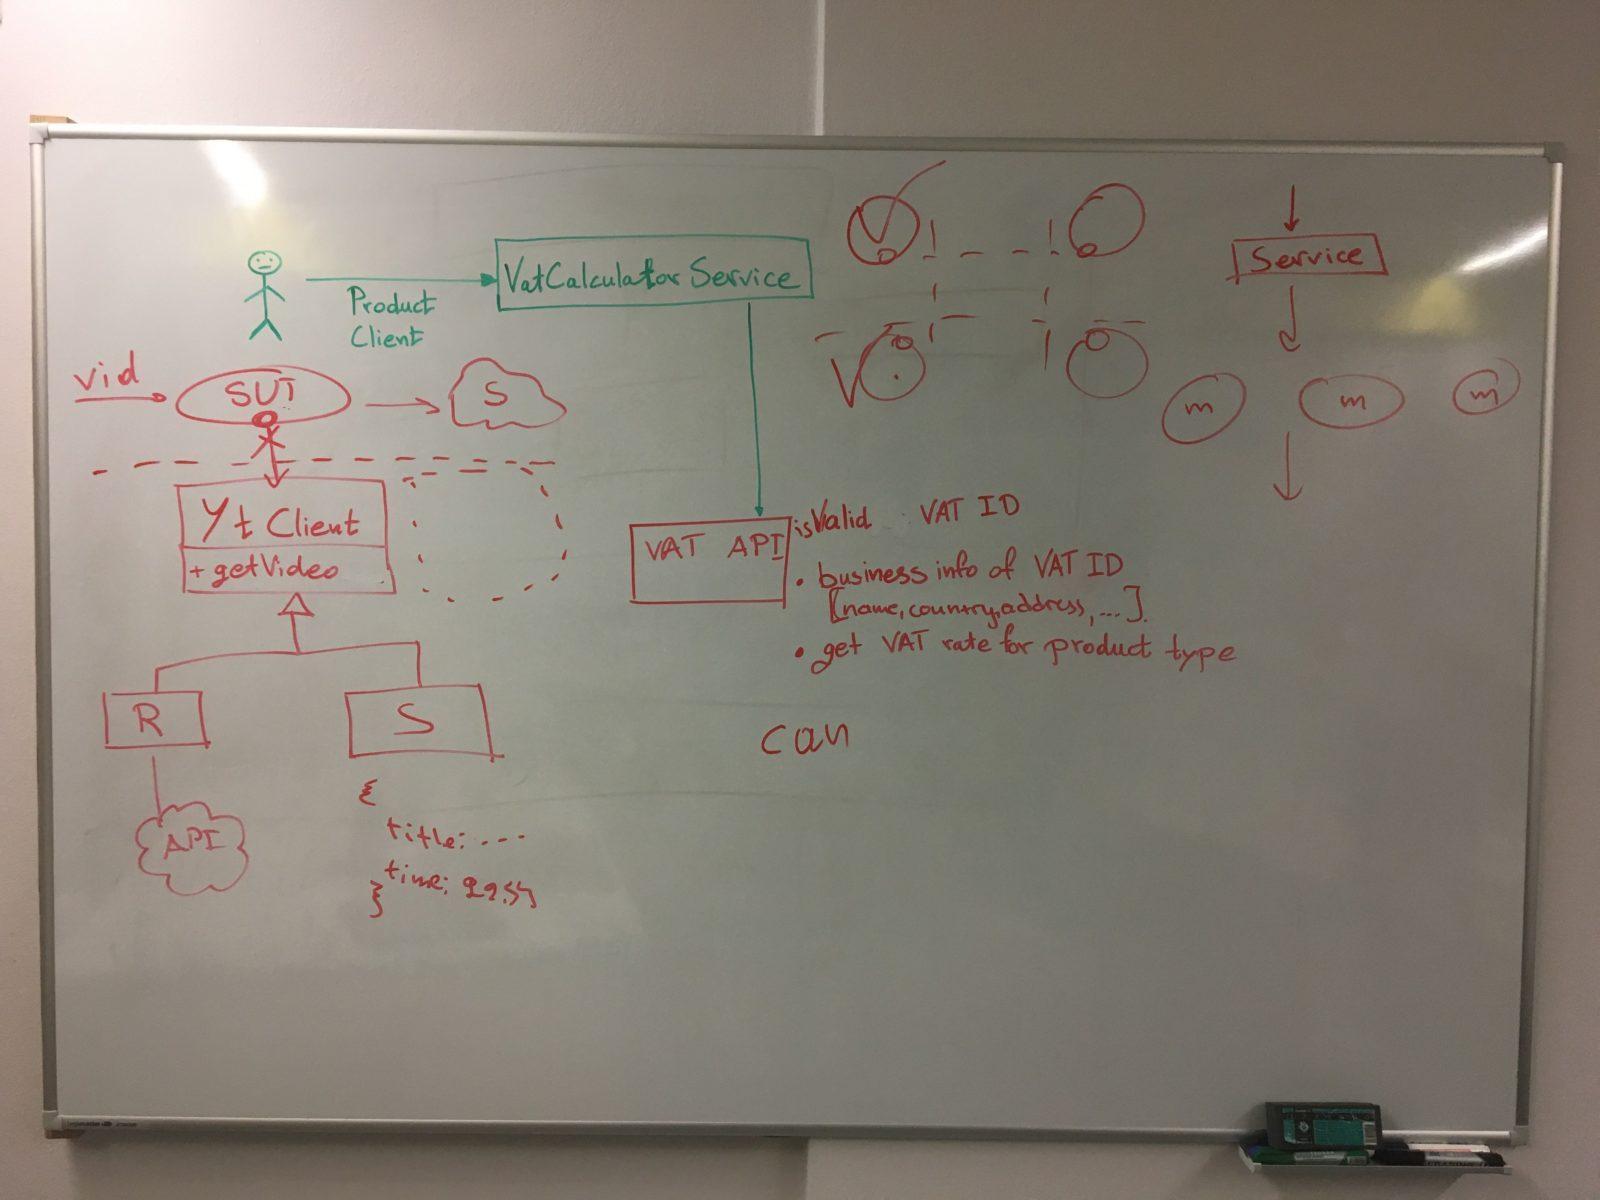 VatCalculator Service
Product
Client
Service
vid
SUT
S
m
m
m
Yt Client
+ getVideo
VAT API
isValid VAT ID
• business info of VAT ID
[name, country, address, ...]
• get VAT rate for product type
R
S
can
API
{
title: ---
time:
}